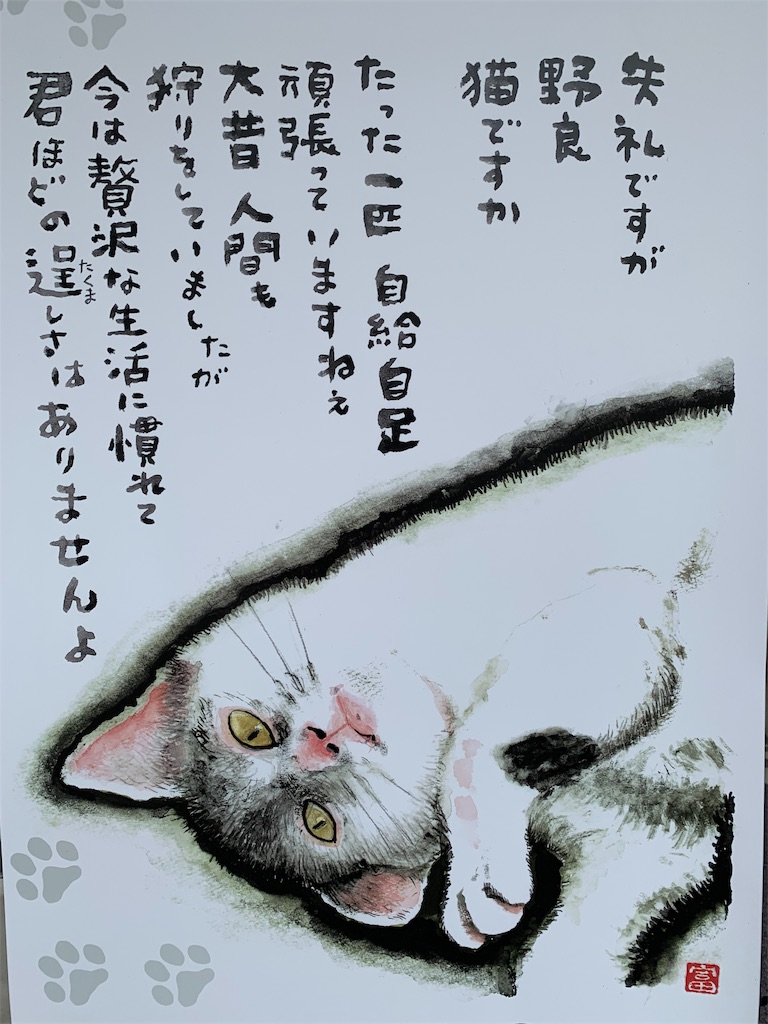 失礼ですが
野良
猫ですか
たった一匹 自給自足
頑張っていますねぇ
大昔 人間も
狩りをしていましたが
今は贅沢な生活に慣れて
君ほどの逞しさはありませんよ
たくま
富